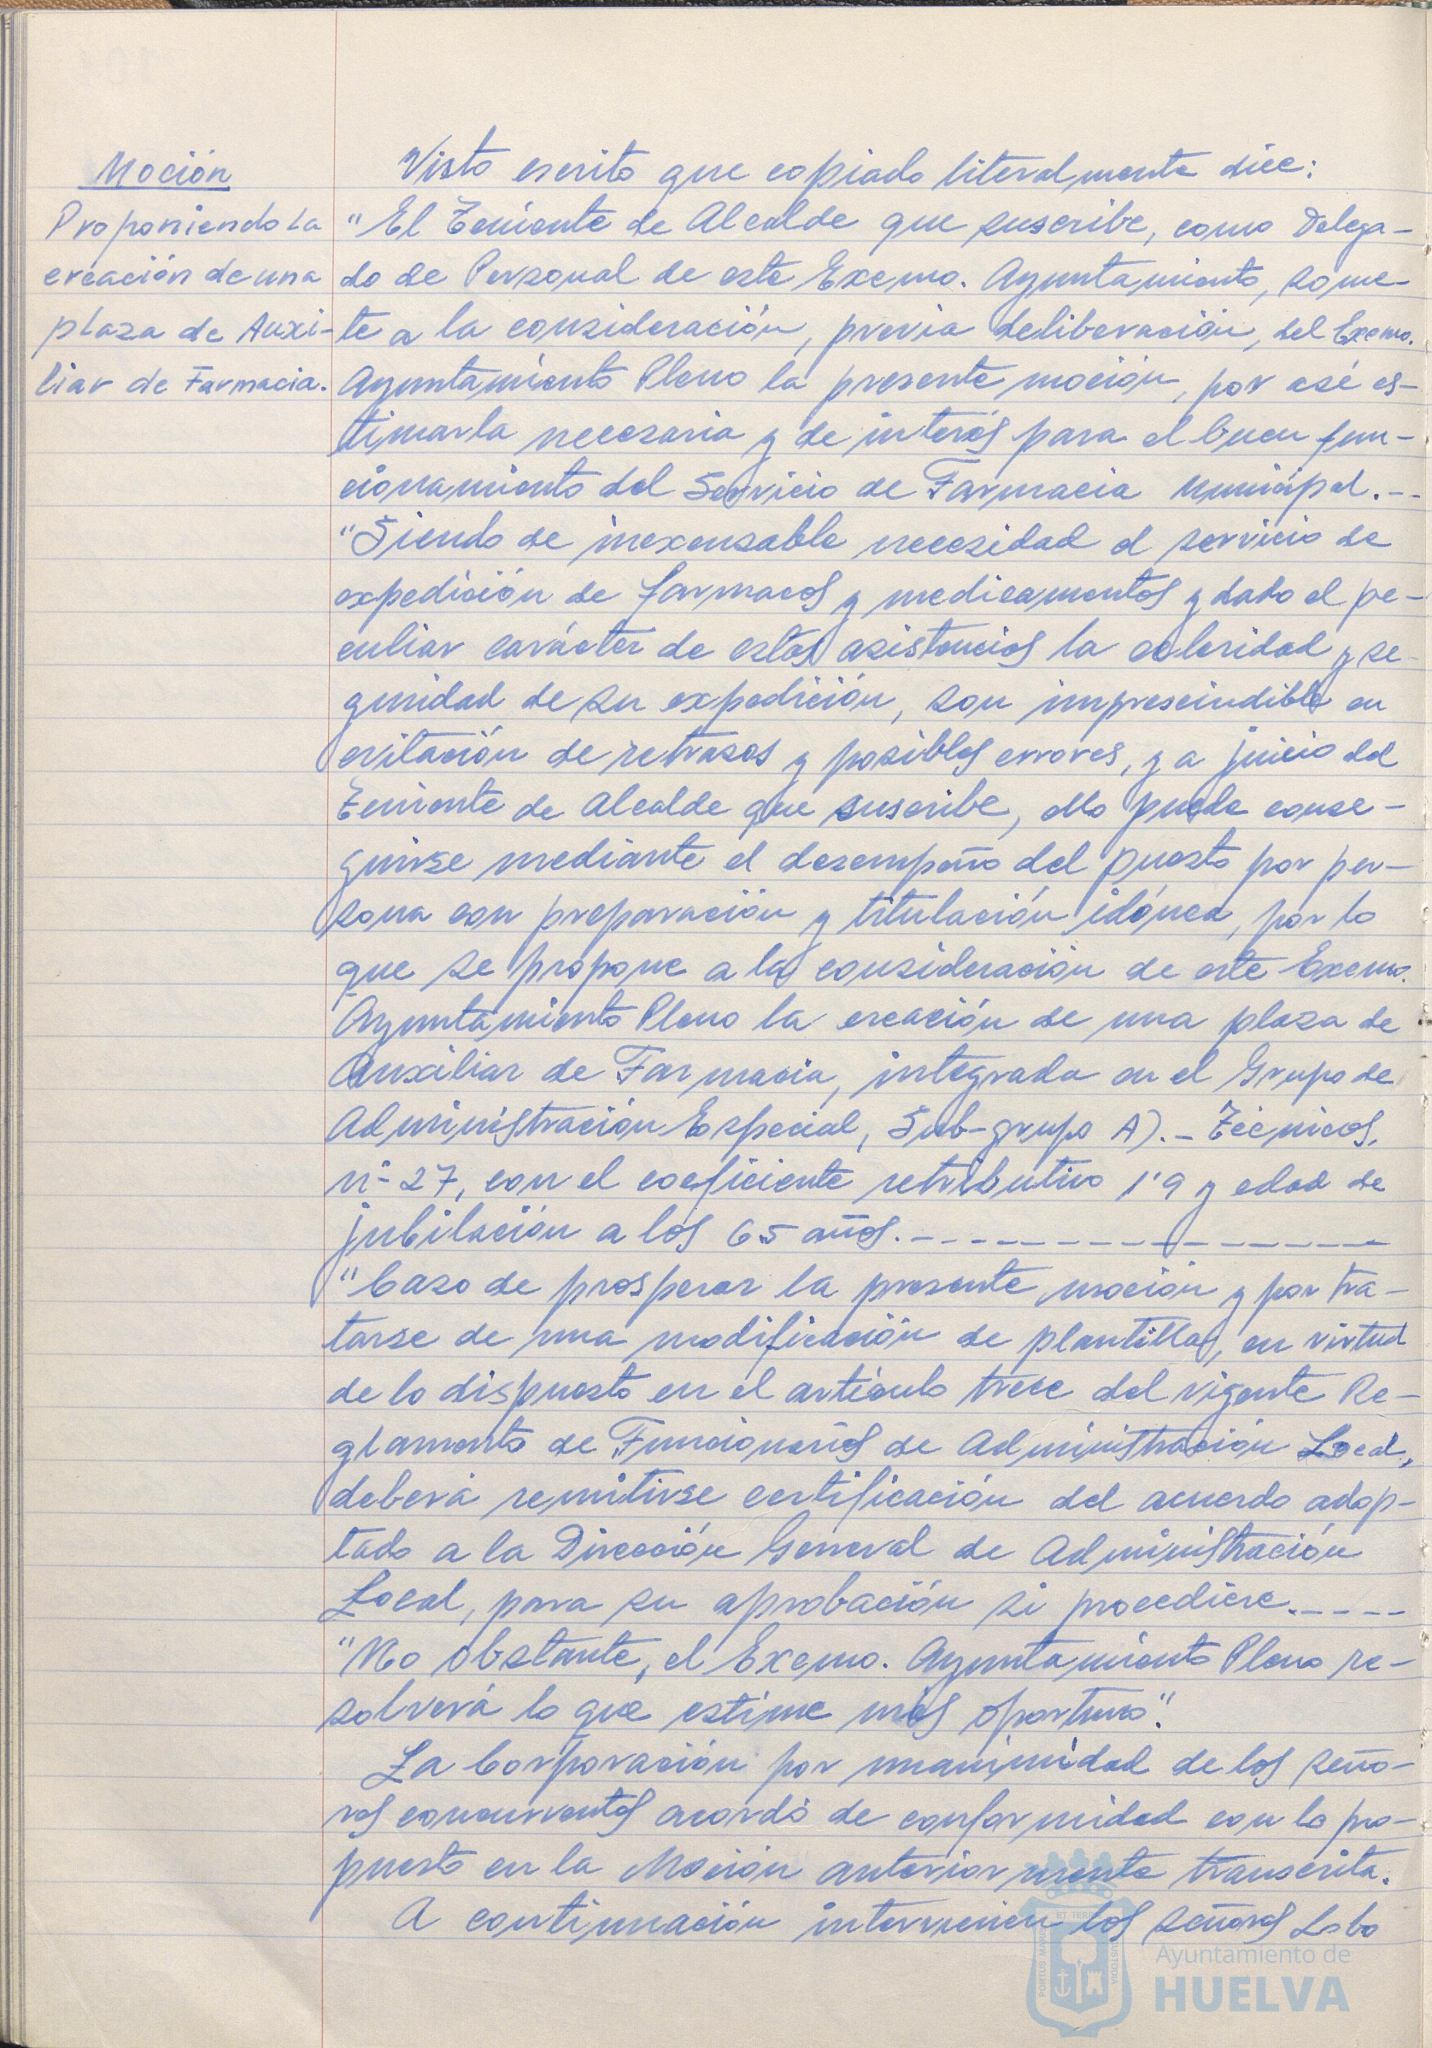 Moción
Proponiendo la
creación de una
plaza de Auxi-
liar de Farmacia.
Visto escrito que copiado literalmente dice:
"El Teniente de Alcalde que suscribe, como Delega-
do de Personal de este Excmo. Ayuntamiento, some-
te a la consideración, previa deliberación, del Excmo.
Ayuntamiento Pleno la presente moción, por asé es-
timarla necesaria y de interés para el buen fun-
cionamiento del Servicio de Farmacia Municipal.--
"Siendo de inexcusable necesidad el servicio de
expedición de farmacos y medicamentos y dado el pe-
culiar carácter de estas asistencias la celeridad y se-
guridad de su expedición, son imprescindible en
evitación de retrasos y posibles errores, y a juicio del
Teniente de Alcalde que suscribe, ello puede conse-
guirse mediante el desempeño del puesto por per-
sona con preparación y titulación idónea, por lo
que se propone a la consideración de este Excmo.
Ayuntamiento Pleno la creación de una plaza de
Auxiliar de Farmacia, integrada en el Grupo de
Administración Especial, Sub-grupo A).- Técnicos,
nº 27, con el coeficiente retributivo 1'9 y edad de
jubilación a los 65 años.-----------------
"Caso de prosperar la presente moción y por tra-
tarse de una modificación de plantillas, en virtud
de lo dispuesto en el artículo trece del vigente Re-
glamento de Funcionarios de Administración Local,
deberá remitirse certificación del acuerdo adop-
tado a la Dirección General de Administración
Local, para su aprobación si procediere.----
"No obstante, el Excmo. Ayuntamiento Pleno re-
solverá lo que estime más oportuno".
La Corporación por unanimidad de los seño-
res concurrentes acordó de conformidad con lo pro-
puesto en la Moción anteriormente transcrita.
A continuación intervienen los señores Lobo
Ayuntamiento de
HUELVA